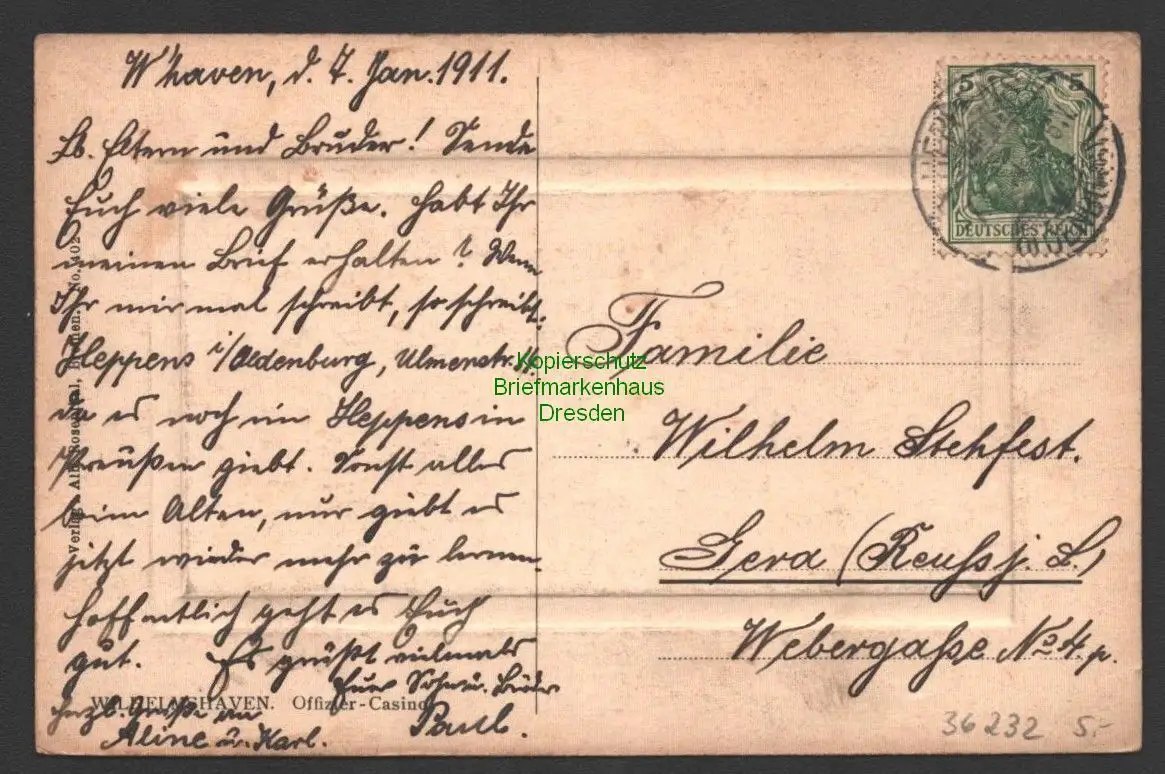 W'haven, d. 7. Jan. 1911.
Lb. Eltern und Bruder! Sende
Euch viele Grüße. Habt Ihr
meinen Brief erhalten? Wenn
Ihr mir mal schreibt, so schreibt:
Heppens i/Oldenburg, Ulmenstr.
da es noch ein Heppens in
Preußen giebt. Sonst alles
beim Alten, nur giebt es
jetzt wieder mehr zu lernen.
Hoffentlich geht es Euch
gut. Es grüßt vielmals
Euer Sohn u. Bruder
Paul.
Herzl. Grüße an
Aline u. Karl.
WILHELMSHAVEN. Offizier-Casino
Verlag: Alb. Rosenthal, Bremen. No.
5 5
DEUTSCHES REICH
OLDENBURG
Familie
Wilhelm Stehfest.
Gera (Reuss j. L.)
Webergasse No 4. p.
Kopierschutz
Briefmarkenhaus
Dresden
36232 5.-